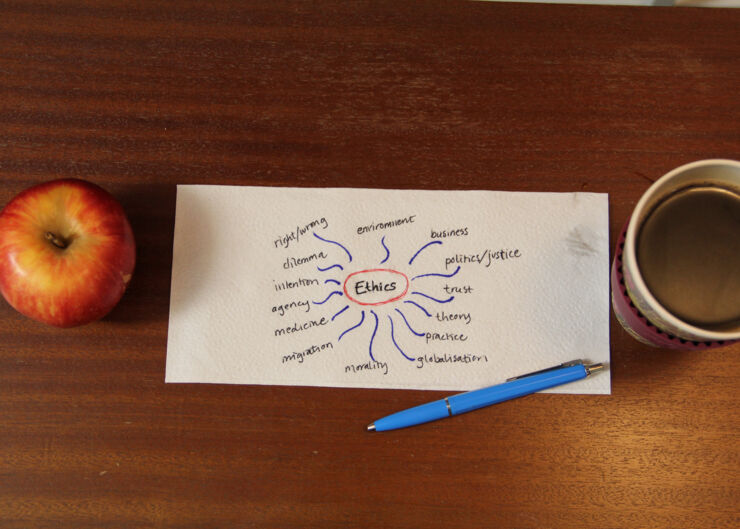 right/wrong
enviroment
business
dilemma
politics/justice
intention
Ethics
trust
agency
theory
medicine
practice
migration
morality
globalisation